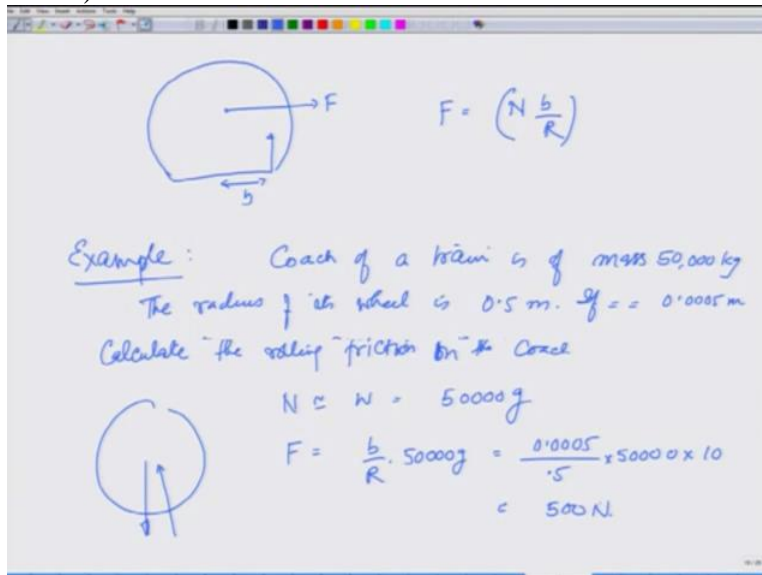 F
F = (N b/R)
b
Example : Coach of a train is of mass 50,000 kg
The radius of its wheel is 0.5 m. If = = 0.0005 m
Calculate the rolling friction on the Coach
N ≃ W = 50000g
F = b/R . 50000g = 0.0005/.5 x 50000 x 10
= 500 N.